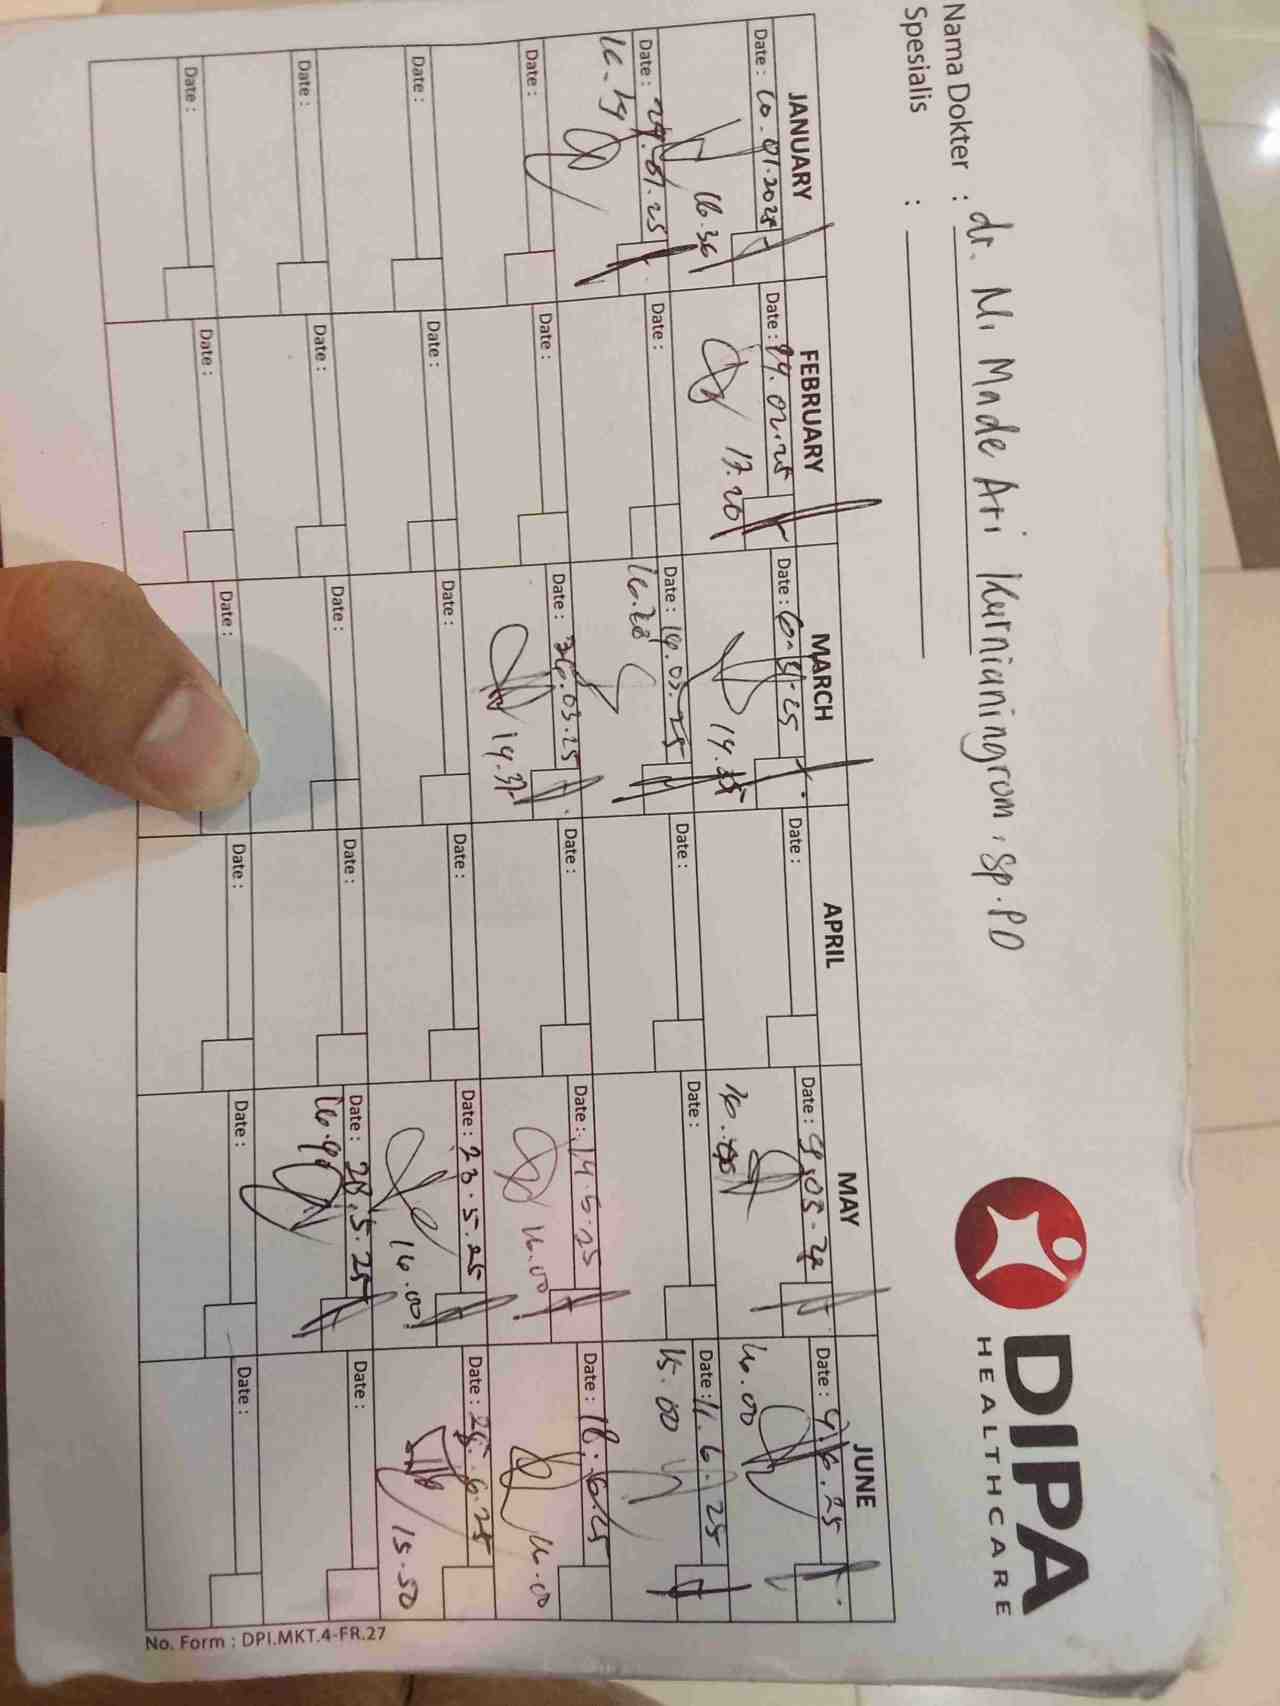 Nama Dokter : dr. Ni Made Ari Kurnianingrom, Sp.PD
Spesialis :
DIPA
HEALTHCARE
JANUARY FEBRUARY MARCH APRIL MAY JUNE
Date : 10.01.2025 Date : Date : Date : Date : Date : 4.6.25
16.36 17.20 14. 16.00
Date : 29.01.25 Date : Date : 14.03.25 Date : Date : Date : 11.6.25
16.28 15.00
Date : Date : Date : 26.03.25 Date : Date : 14.5.25 Date : 18.6.25
14.37 16.00 16.00
Date : Date : Date : Date : Date : 23.5.25 Date : 25.6.25
16.00 15.50
Date : Date : Date : Date : Date : 28.5.25 Date :
16.40
Date : Date : Date : Date : Date : Date :
No. Form : DPI.MKT.4-FR.27